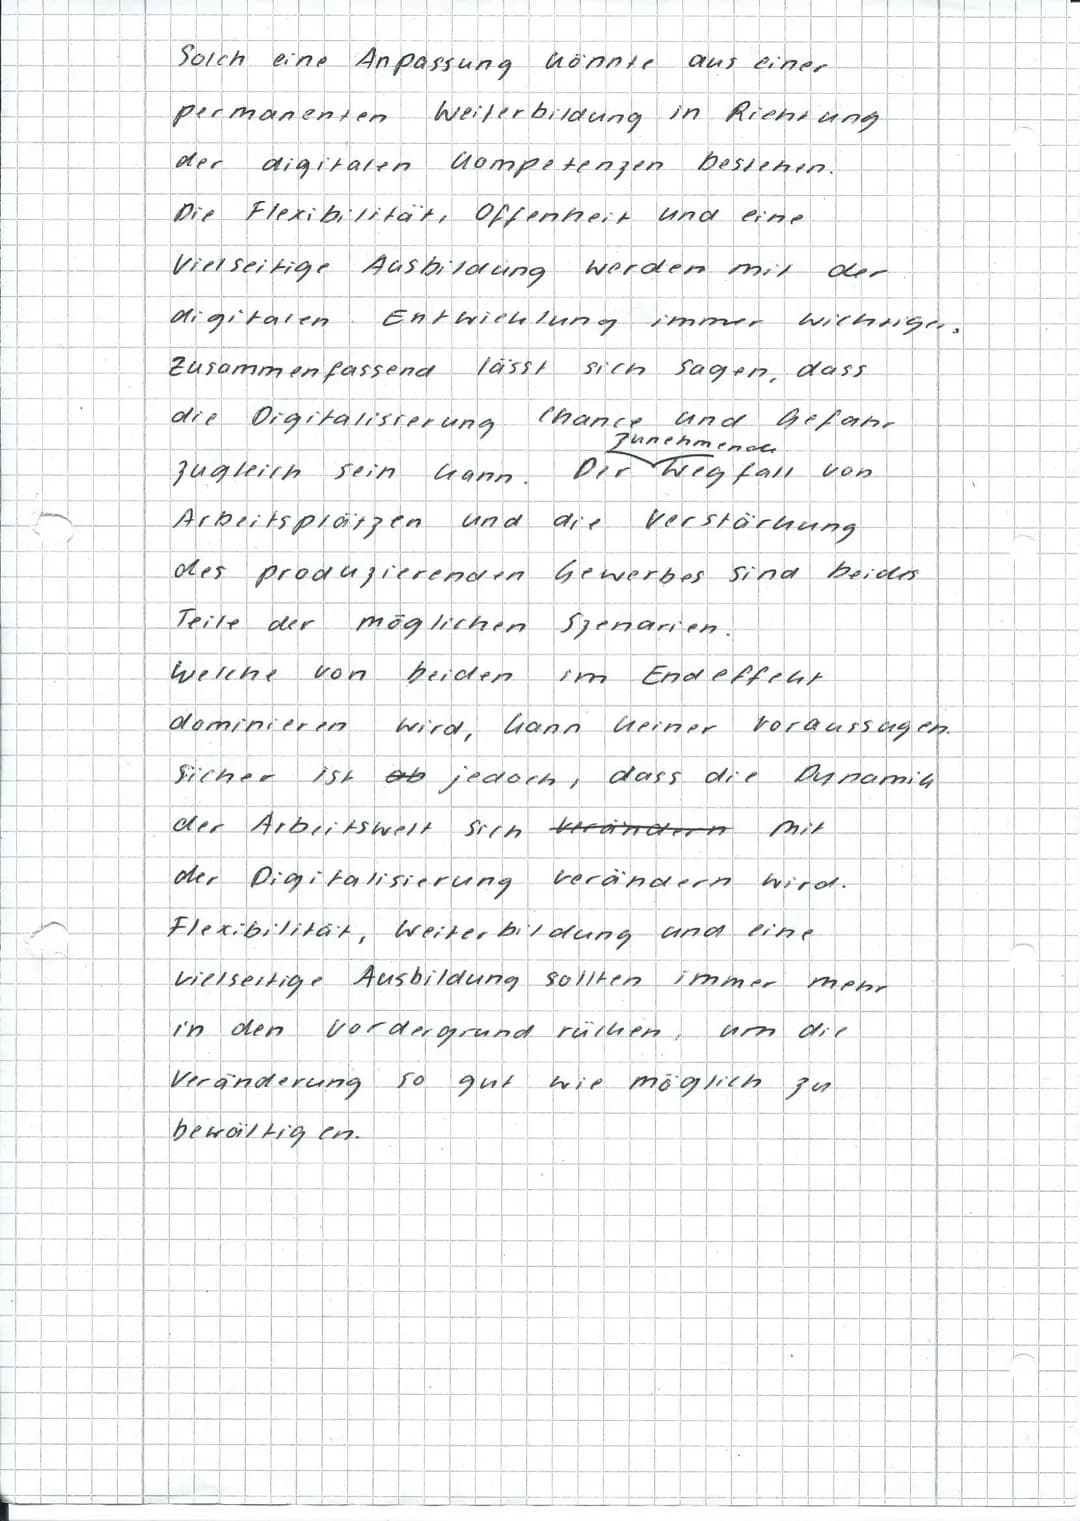 Solch eine Anpassung könnte aus einer
permanenten Weiterbildung in Richtung
der digitalen Kompetenzen bestehen.
Die Flexibilität, Offenheit und eine
Vielseitige Ausbildung werden mit der
digitalen Entwicklung immer wichtiger.
Zusammenfassend lässt sich sagen, dass
die Digitalisierung Chance und Gefahr
zunehmende
zugleich sein kann. Der Wegfall von
Arbeitsplätzen und die Verstärkung
des produzierenden Gewerbes sind beides
Teile der möglichen Szenarien.
Welche von beiden im Endeffekt
dominieren wird, kann keiner voraussagen.
Sicher ist ob jedoch, dass die Dynamik
der Arbeitswelt sich verändern mit
der Digitalisierung verändern wird.
Flexibilität, Weiterbildung und eine
vielseitige Ausbildung sollten immer mehr
in den Vordergrund rücken, um die
Veränderung so gut wie möglich zu
bewältigen.